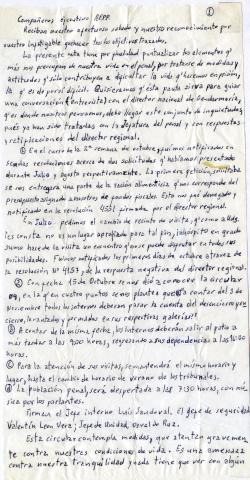 ①
Compañeros ejecutivo AEPP.
Reciban nuestro afectuoso saludo y nuestro reconocimiento por
vuestro infatigable quehacer tras los objetivos trazados.
La presente nota tiene por finalidad puntualizar los elementos q'
más nos preocupan de nuestra vida en el penal, por tratarse de medidas y
actitudes q' sólo contribuyen a dificultar la vida q' hacemos en prisión,
la q' es de por sí difícil. Quisiéramos q' esta pauta sirva para guiar
una conversación (entrevista) con el director nacional de Gendarmería,
q' es donde nosotros pensamos, debe llegar este conjunto de inquietudes,
pues ya han sido tratadas con la jefatura del penal y con respuestas
y estipulaciones del director regional.
① En el curso de la 2ª semana de octubre, fuimos notificados en
sendas resoluciones acerca de dos solicitudes q' habíamos presentado
durante Julio y agosto respectivamente. La primera petición, solicitaba
se nos entregara una parte de la ración alimenticia q' nos corresponde del
presupuesto asignado a nosotros de parte del fiscales. Esto nos fue denegado y
notificado en la resolución 4551 firmada por el director regional.
En Julio, pedimos el cambio de recinto de visita, q' como a Uds.
les consta no es un lugar apropiado para tal fin,
sumo hace de la visita un encuentro q' no se puede disfrutar en todas sus
posibilidades. Fuimos notificados los primeros días de octubre a través de
la resolución Nº 4157, de la respuesta negativa del director regional.
② Con fecha 15 de Octubre se nos dió a conocer la circular
en la q' en cuatro puntos se nos plantea que a contar del 3 de
Noviembre todos los internos deberán pasar la cuenta del desencierro y en
cierro, levantados y formados en sus respectivas galerías!
③ A contar de la misma fecha, los internos deberán salir al patio a
más tardar a las 9:00 horas, regresando a sus dependencias a las
horas.
④ Para la atención de sus visitas, se mantendrá el mismo horario y
lugar, hasta el cambio de horario de verano de los tribunales.
④ La población penal, será despertada a las 7:30 horas, con mú
sica por los parlantes.
Firman el Jefe interno Luis Sandoval, el jefe de seguridad
Valentín Leon Vera; Jefe de Unidad, Osval de Ruz.
Esta circular contempla medidas, que atentan gravemen
te contra nuestras condiciones de vida. Es una amenaza
contra nuestra tranquilidad y nada tiene que ver con algún